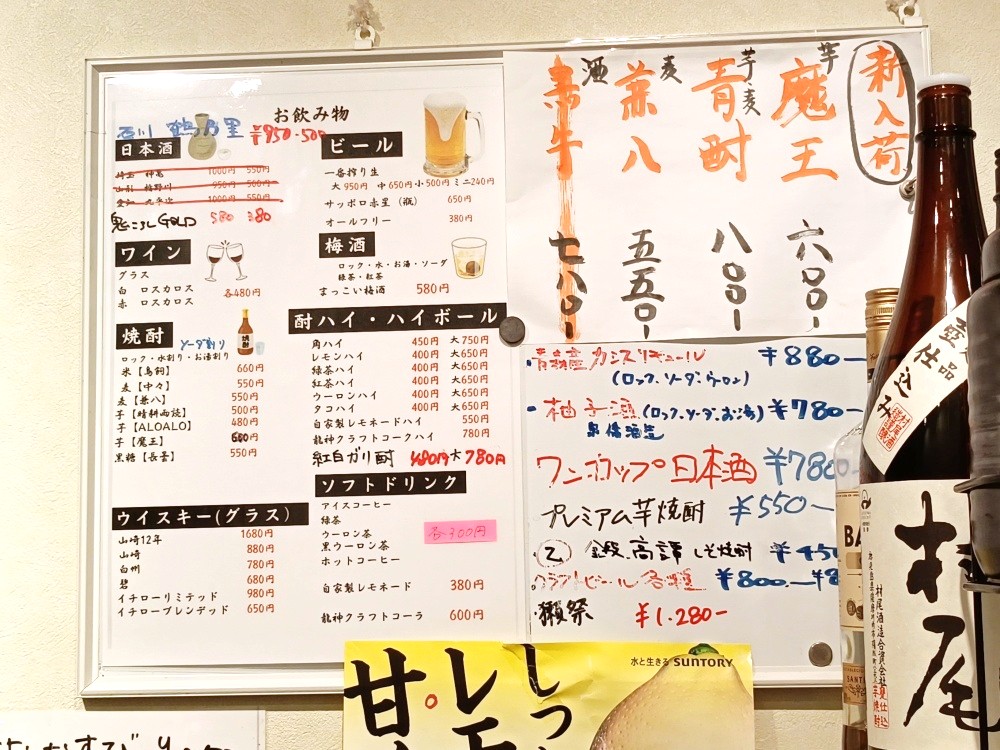 お飲み物
石川 鶴乃里 ¥950・500
日本酒
埼玉 神亀 1000円 550円
山形 楯野川 950円 500円
愛知 九平次 1000円 550円
鬼ころしGOLD 580 380
ワイン
グラス
白 ロスカロス
赤 ロスカロス
各480円
焼酎 ソーダ割り
焼酎
ロック・水割り・お湯割り
米【鳥飼】 660円
麦【中々】 550円
麦【兼八】 550円
芋【晴耕雨読】 500円
芋【ALOALO】 480円
芋【魔王】 600円
黒糖【長雲】 550円
ウイスキー(グラス)
山崎12年 1680円
山崎 880円
白州 780円
碧 680円
イチローリミテッド 980円
イチローブレンデッド 650円
ビール
一番搾り生
大 950円 中 650円 小 500円 ミニ 240円
サッポロ赤星(瓶) 650円
オールフリー 380円
梅酒
ロック・水・お湯・ソーダ
緑茶・紅茶
まっこい梅酒 580円
酎ハイ・ハイボール
角ハイ 450円 大750円
レモンハイ 400円 大650円
緑茶ハイ 400円 大650円
紅茶ハイ 400円 大650円
ウーロンハイ 400円 大650円
タコハイ 400円 大650円
自家製レモネードハイ 550円
龍神クラフトコークハイ 780円
紅白ガリ酎 480円 大780円
ソフトドリンク
アイスコーヒー
緑茶
ウーロン茶
黒ウーロン茶
ホットコーヒー
各300円
自家製レモネード 380円
龍神クラフトコーラ 600円
新入荷
芋 魔王 六〇〇-
芋・麦 青酎 八〇〇-
麦 兼八 五五〇-
酒 七八〇-
青森産カシスリキュール ¥880-
(ロック、ソーダ、ウーロン)
・柚子酒(ロック、ソーダ、お湯) ¥780-
泉橋酒造
ワンカップ日本酒 ¥780-
プレミアム芋焼酎 ¥550-
乙 鍛高譚 しそ焼酎 ¥450
クラフトビール各種 ¥800-
・獺祭 ¥1.280-
水と生きる SUNTORY
仕込み
村尾
村尾酒造合資会社
甕仕込
芋焼酎